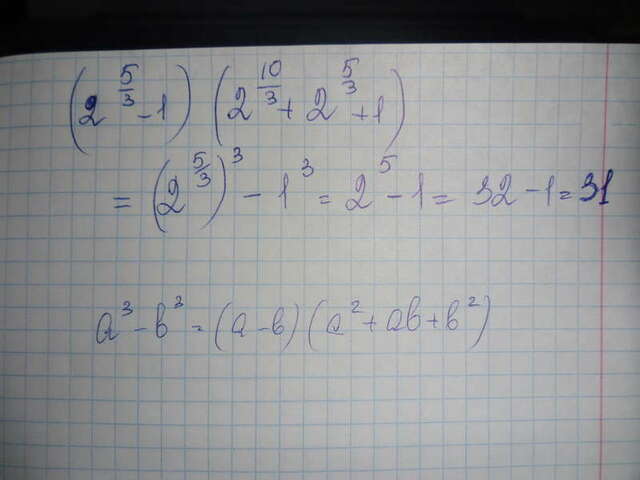 (2^(5/3) - 1) (2^(10/3) + 2^(5/3) + 1)
= (2^(5/3))^3 - 1^3 = 2^5 - 1 = 32 - 1 = 31
a^3 - b^3 = (a - b) (a^2 + ab + b^2)